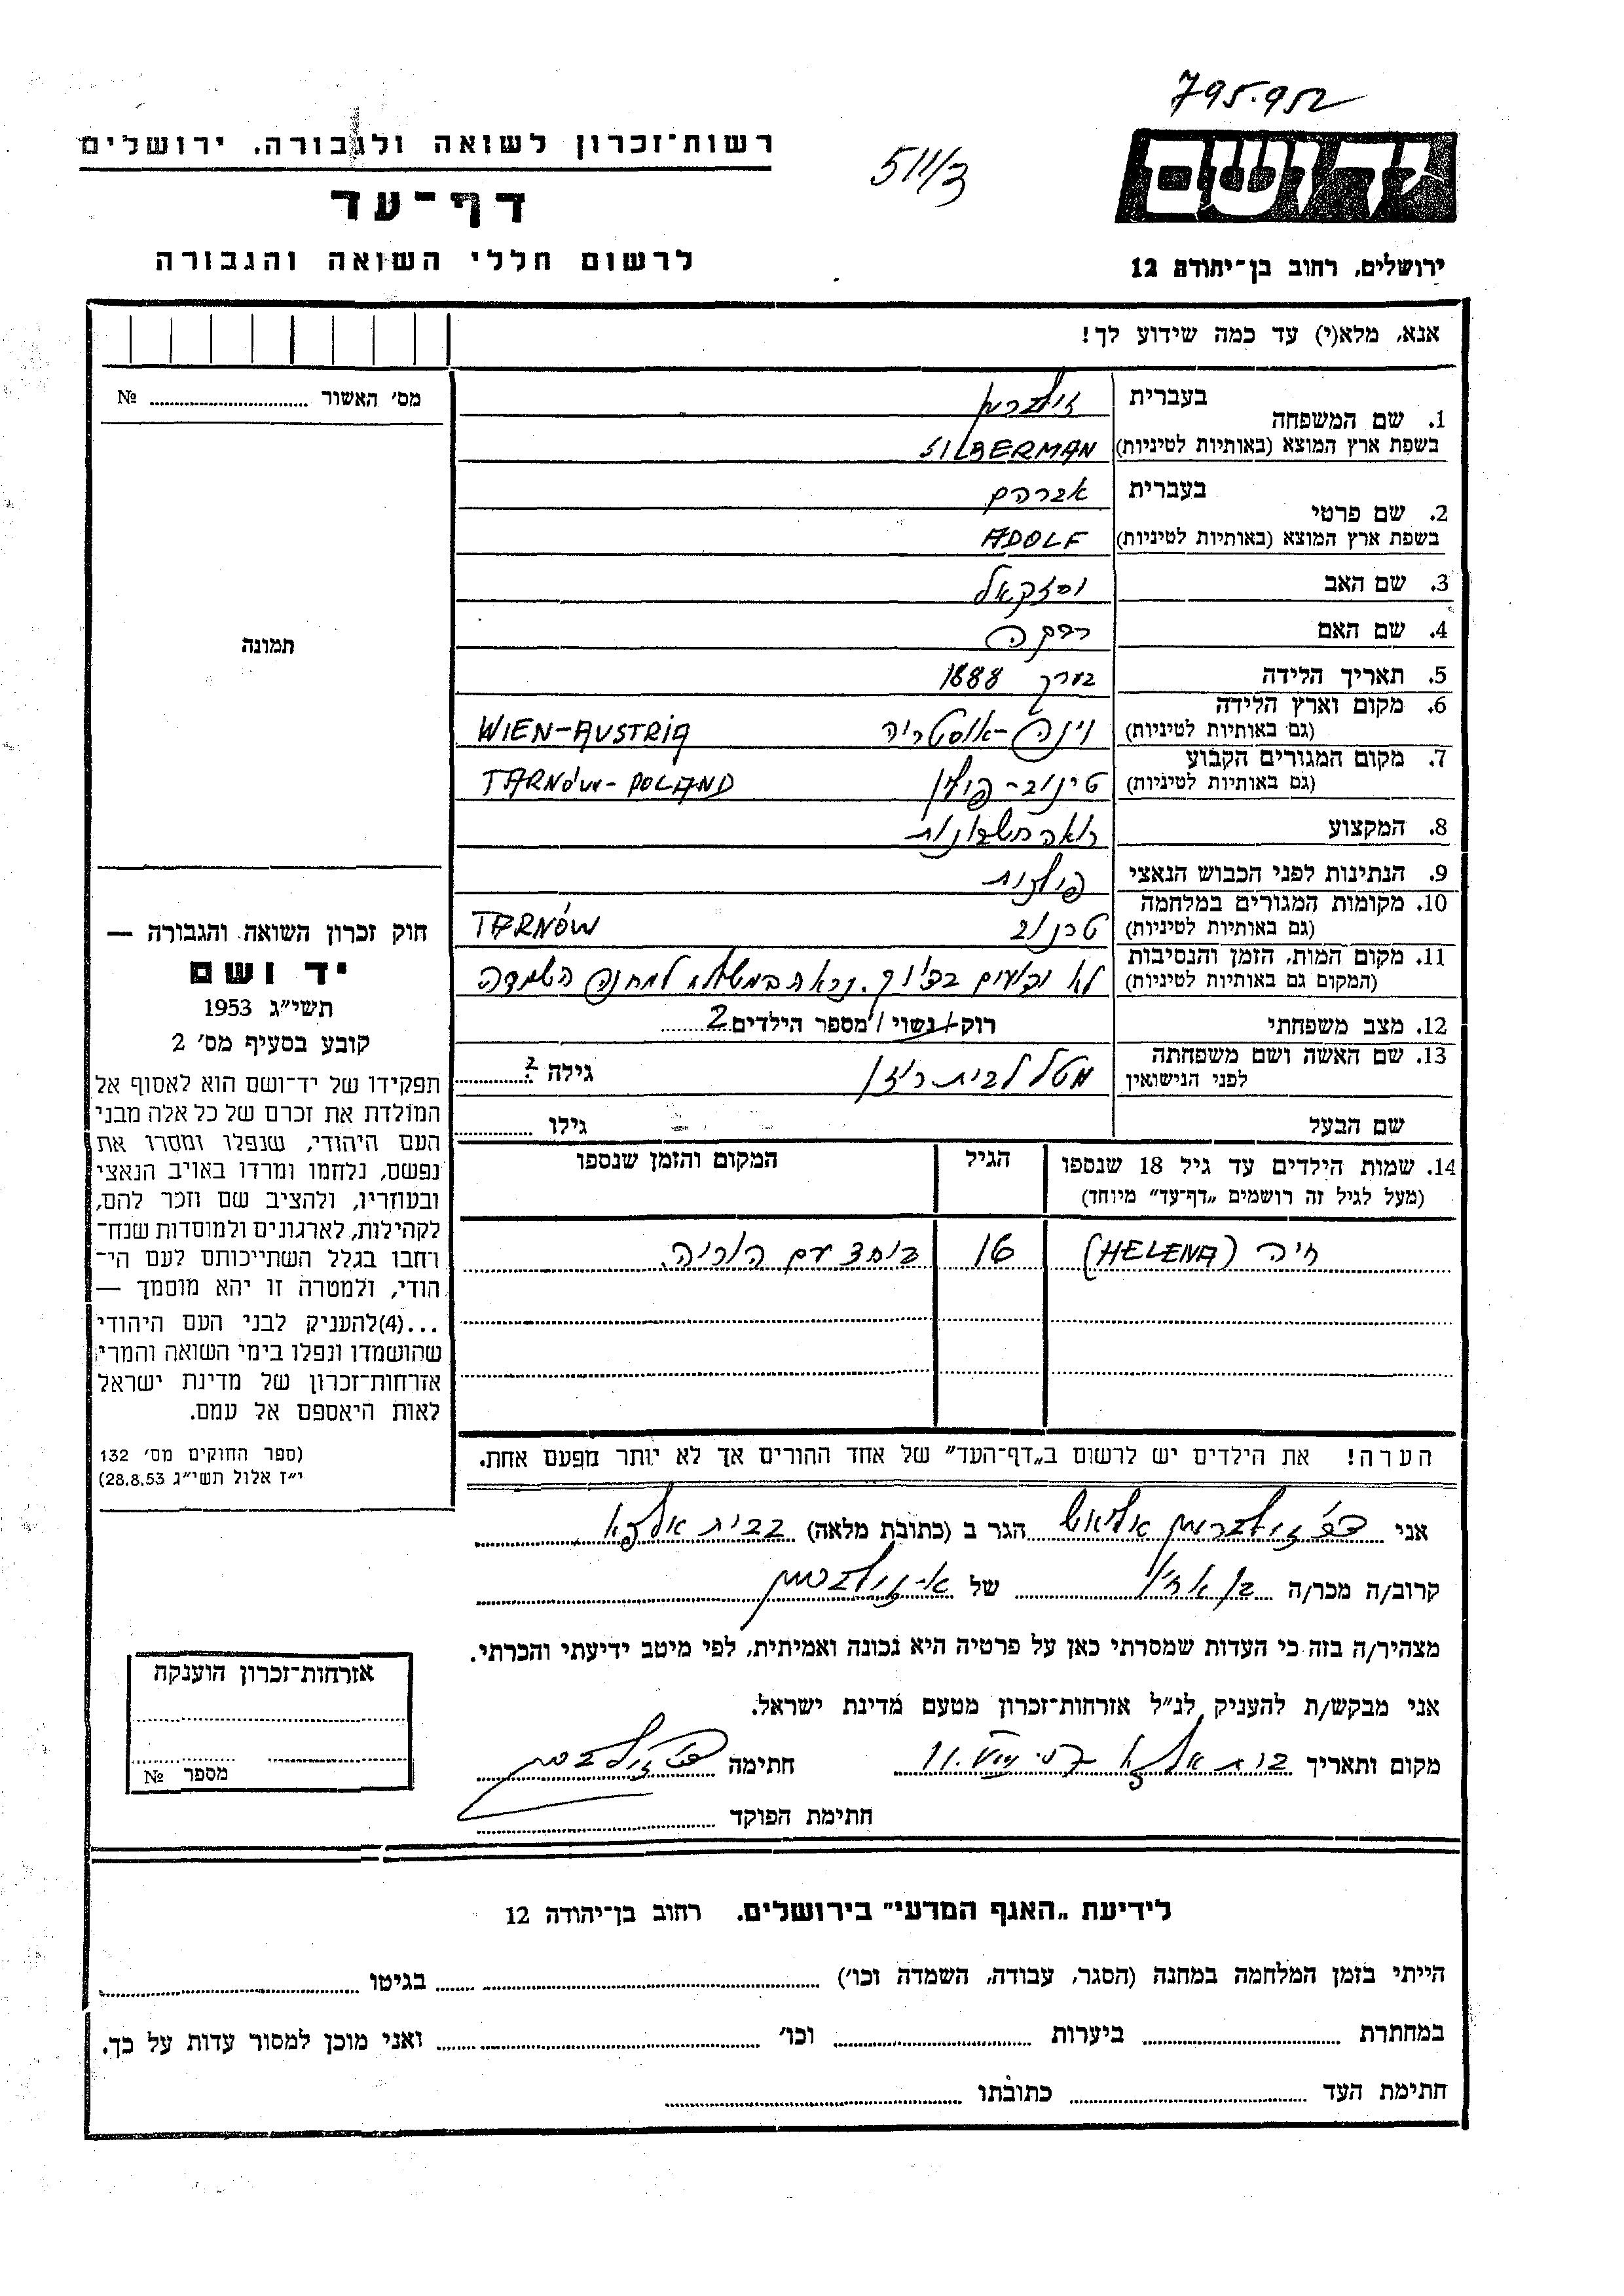 795.952
רשות־זכרון לשואה ולגבורה. ירושלים
511/3
יד ושם
דף־עד
לרשום חללי השואה והגבורה
ירושלים, רחוב בן־יהודה 12
אנא, מלא(י) עד כמה שידוע לך!
מס׳ האשור № 
1. שם המשפחה
בעברית זילברמן
בשפת ארץ המוצא (באותיות לטיניות) SILBERMAN
2. שם פרטי
בעברית אברהם
בשפת ארץ המוצא (באותיות לטיניות) ADOLF
3. שם האב יחזקאל
4. שם האם רבקה
תמונה
5. תאריך הלידה בערך 1888
6. מקום וארץ הלידה (גם באותיות לטיניות) וינה-אוסטריה WIEN-AUSTRIA
7. מקום המגורים הקבוע (גם באותיות לטיניות) טרנוב-פולין TARNÓW-POLAND
8. המקצוע רואה חשבונות
9. הנתינות לפני הכבוש הנאצי פולנית
10. מקומות המגורים במלחמה (גם באותיות לטיניות) טרנוב TARNÓW
11. מקום המות, הזמן והנסיבות (המקום גם באותיות לטיניות) לא בדיוק. נראה במשלוח למחנה השמדה
12. מצב משפחתי רוק/נשוי/מספר הילדים 2
13. שם האשה ושם משפחתה לפני הנישואין לבית גילה ?
שם הבעל גילו
14. שמות הילדים עד גיל 18 שנספו (מעל לגיל זה רושמים „דף־עד״ מיוחד) הגיל המקום והזמן שנספו
חיה (HELENA) 16 ביחד עם הוריה.
הערה! את הילדים יש לרשום ב„דף־העד״ של אחד ההורים אך לא יותר מפעם אחת.
חוק זכרון השואה והגבורה —
יד ושם
תשי״ג 1953
קובע בסעיף מס׳ 2
תפקידו של יד־ושם הוא לאסוף אל
המולדת את זכרם של כל אלה מבני
העם היהודי, שנפלו ומסרו את
נפשם, נלחמו ומרדו באויב הנאצי
ובעוזריו, ולהציב שם וזכר להם,
לקהילות, לארגונים ולמוסדות שנח־
רחבו בגלל השתייכותם לעם הי־
הודי, ולמטרה זו יהא מוסמך —
...(4)להעניק לבני העם היהודי
שהושמדו ונפלו בימי השואה והמרי
אזרחות־זכרון של מדינת ישראל
לאות היאספם אל עמם.
(ספר החוקים מס׳ 132
י״ז אלול תשי״ג 28.8.53)
אני זילברמן הגר ב (כתובת מלאה) בבית אלפא
קרוב/ה מכר/ה בן אחיו של א. זילברמן
מצהיר/ה בזה כי העדות שמסרתי כאן על פרטיה היא נכונה ואמיתית, לפי מיטב ידיעתי והכרתי.
אני מבקש/ת להעניק לנ״ל אזרחות־זכרון מטעם מדינת ישראל.
מקום ותאריך בית אלפא חתימה זילברמן
חתימת הפוקד
אזרחות־זכרון הוענקה
מספר №
לידיעת „האגף המדעי״ בירושלים. רחוב בן־יהודה 12
הייתי בזמן המלחמה במחנה (הסגר, עבודה, השמדה וכו׳) בגיטו
במחתרת ביערות וכו׳ ואני מוכן למסור עדות על כך.
חתימת העד כתובתו